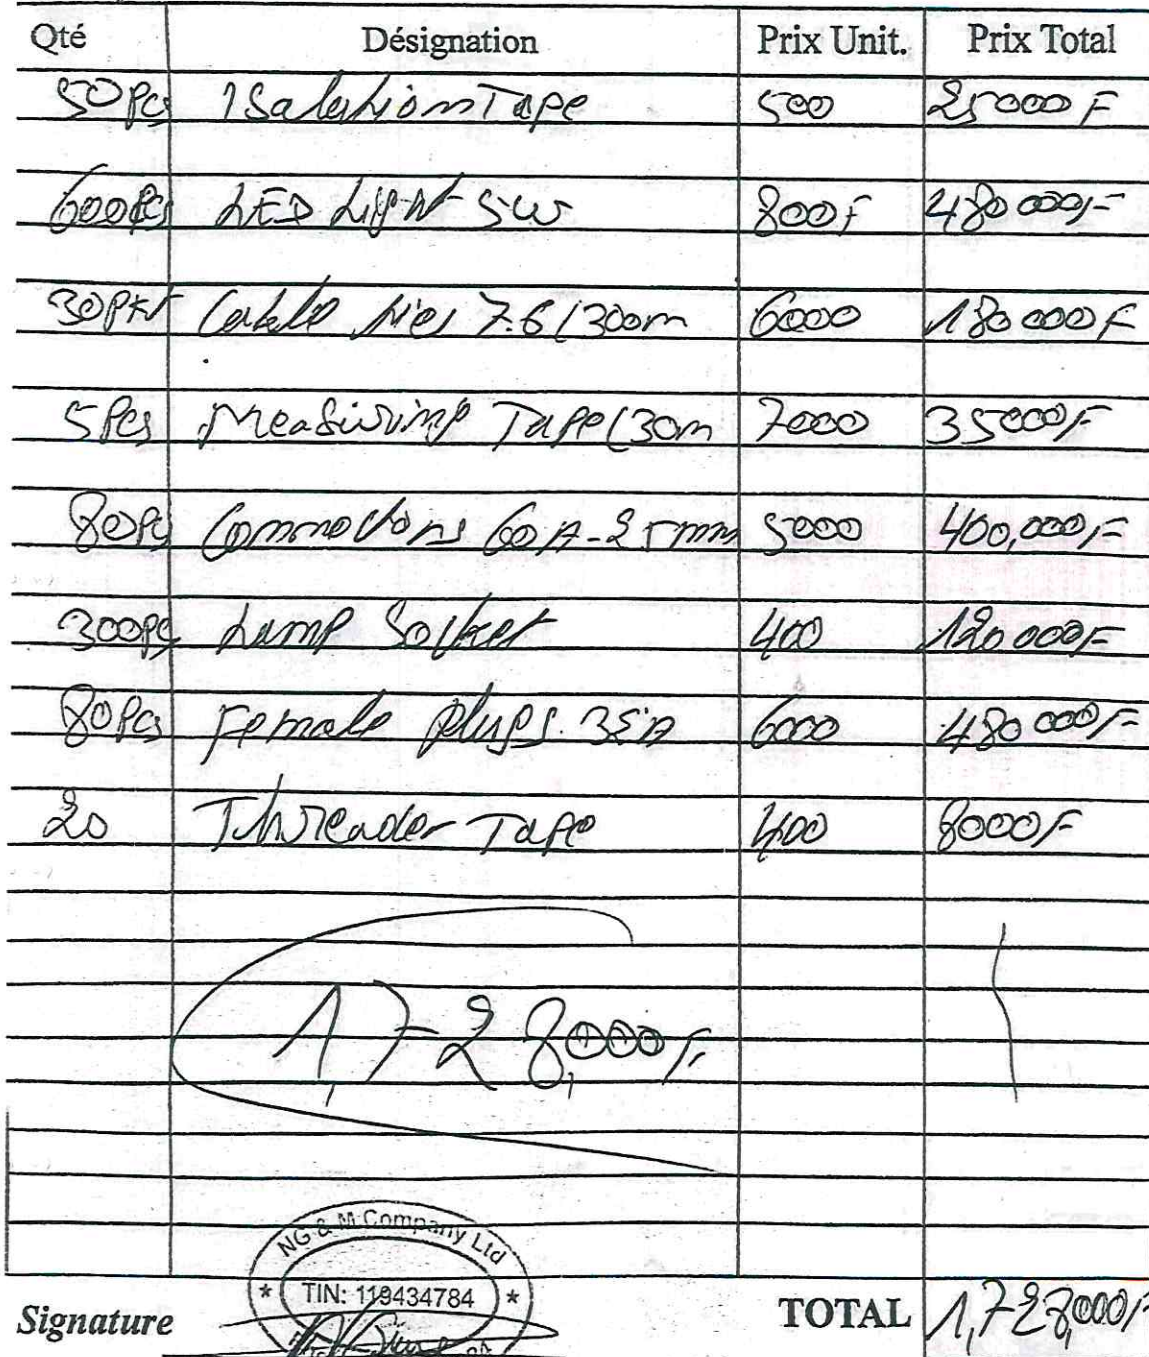 Qté Désignation Prix Unit. Prix Total
50Pcs Isalation Tape 500 25000F
600Pcs LED Light 5W 800F 480000F
30Pkt Cable ties 7.6(300m 6000 180000F
5Pcs Measuring Tape(30m 7000 35000F
80Pcs Connectors 60A-25mm 5000 400,000F
300Pcs Lamp Socket 400 120000F
80Pcs Female plugs. 32A 6000 480000F
20 Threader Tape 400 8000F
1,728,000F
NG & M Company Ltd
* TIN: 119434784 *
Signature TOTAL 1,728,000F